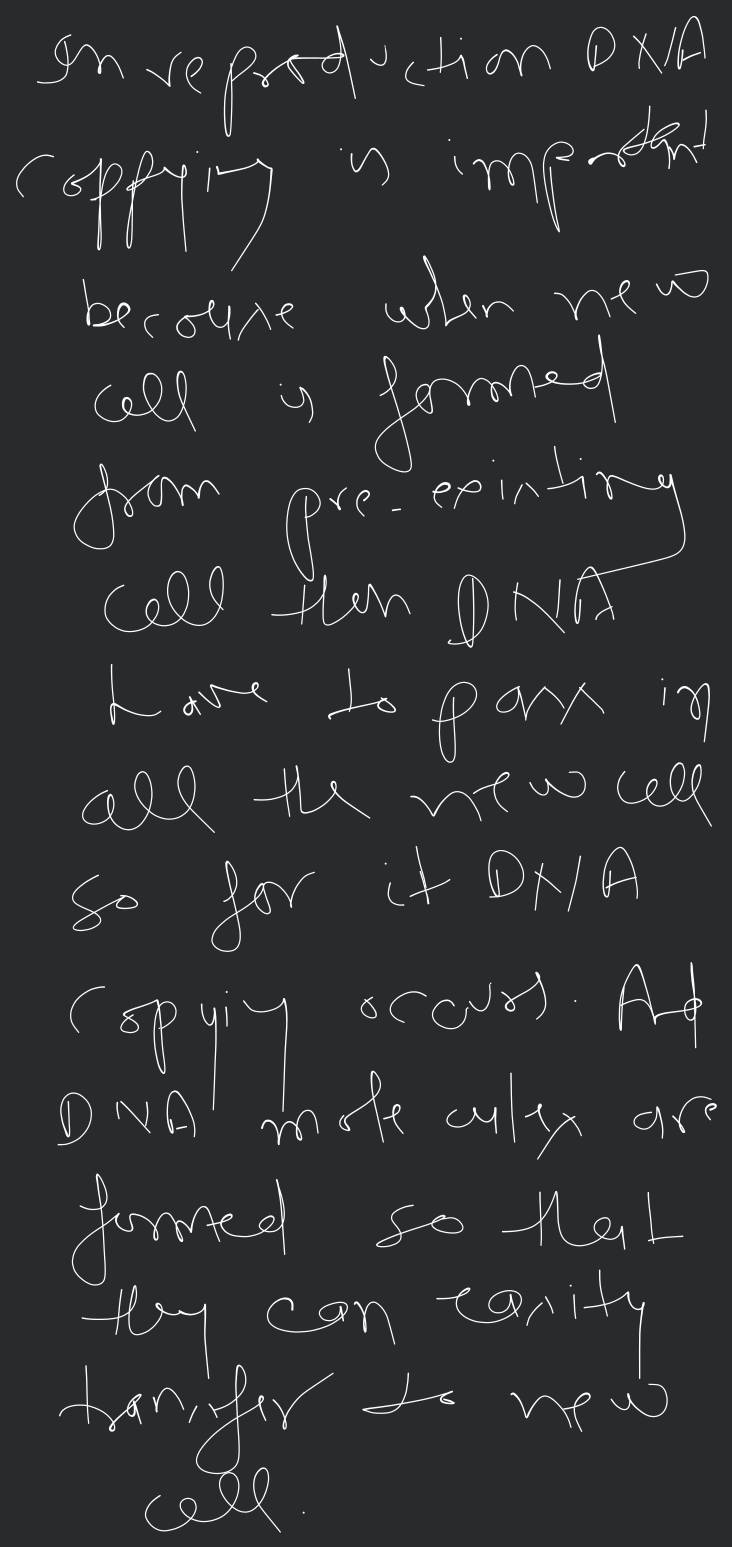 In reproduction DNA
coppying is important
because when new
cell is formed
from pre-existing
cell then DNA
have to pass in
all the new cell
so for it DNA
copying occurs. And
DNA molecules are
formed so that
they can easity
transfer to new
cell.